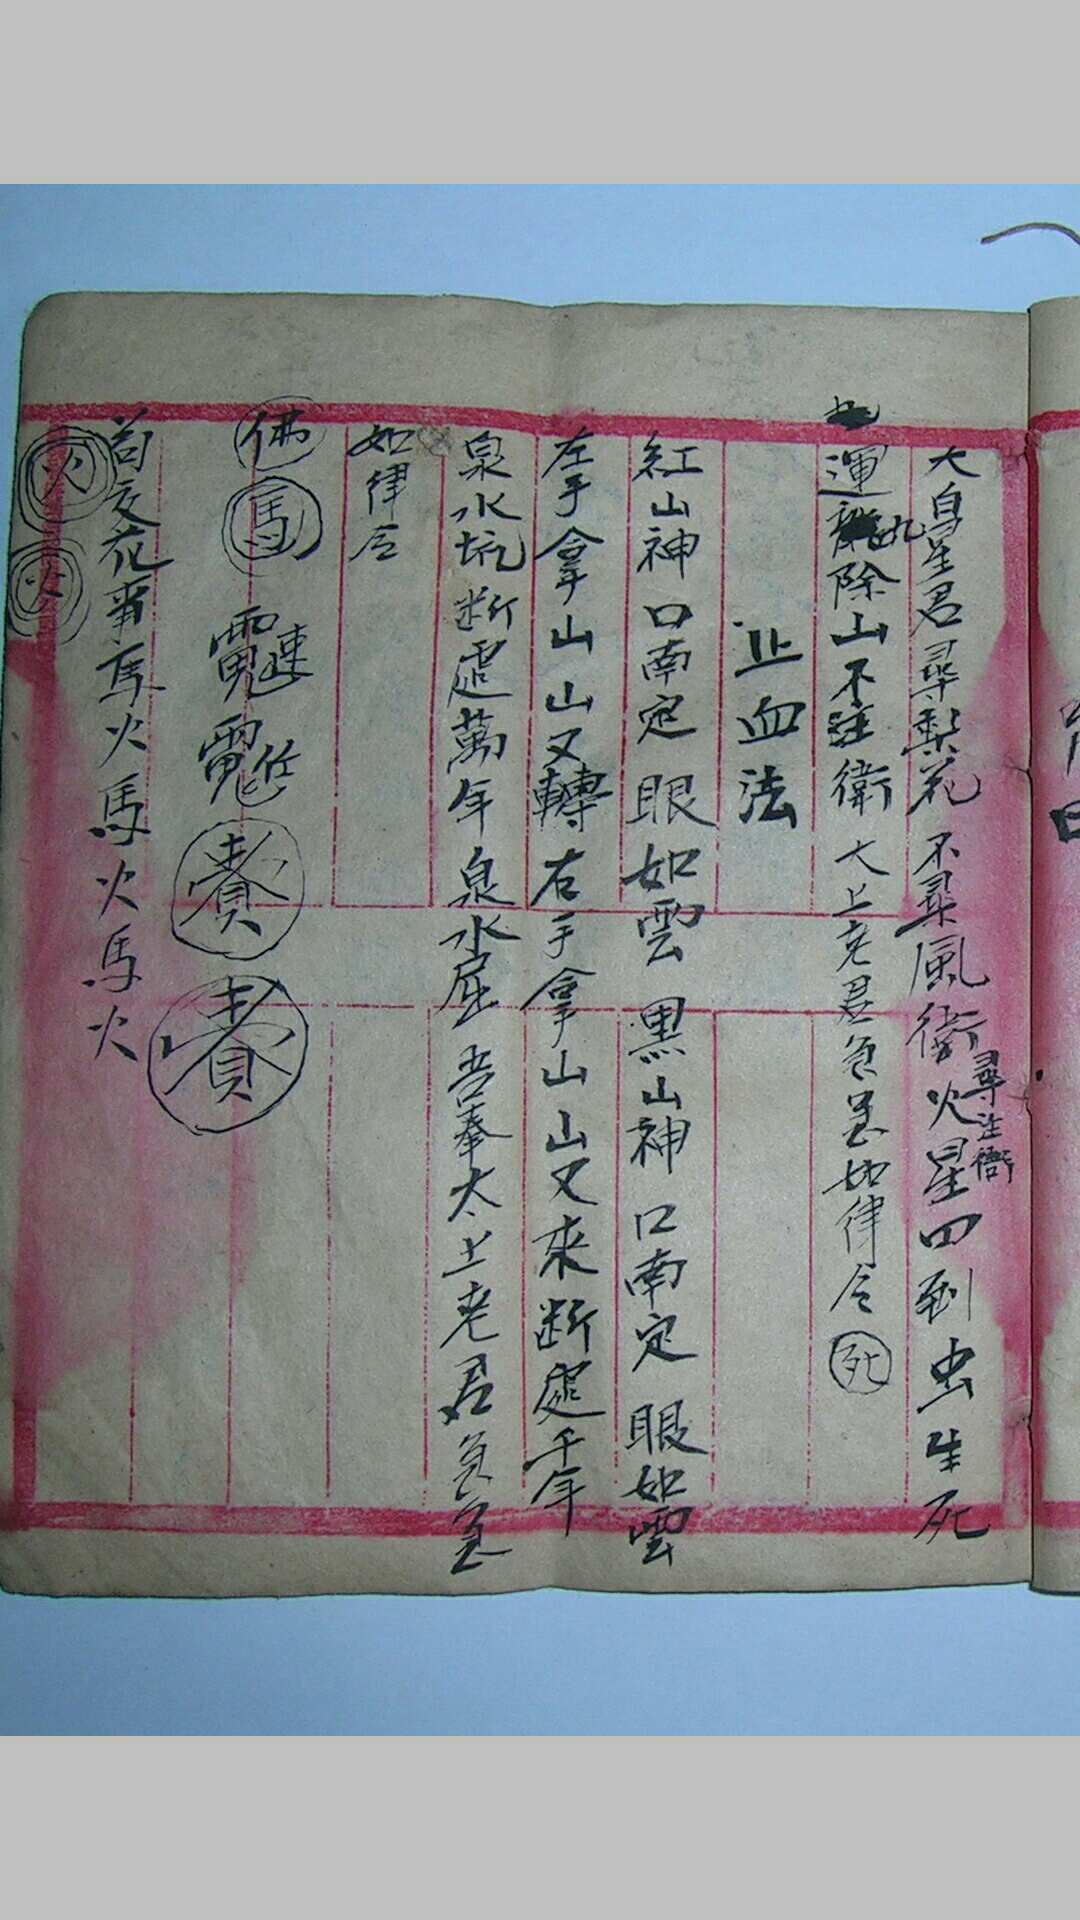 大皇星君尋梨花不尋風衛火星四到虫生死
尋注衛
運除山不注衛大上老君急急如律令死
止血法
紅山神口南定眼如雲黑山神口南定眼如雲
左手拿山山又轉右手拿山山又來断處千年
泉水坑断處萬年泉水屈吾奉太上老君急急
如律令
佛馬
花 馬火馬火馬火
火火